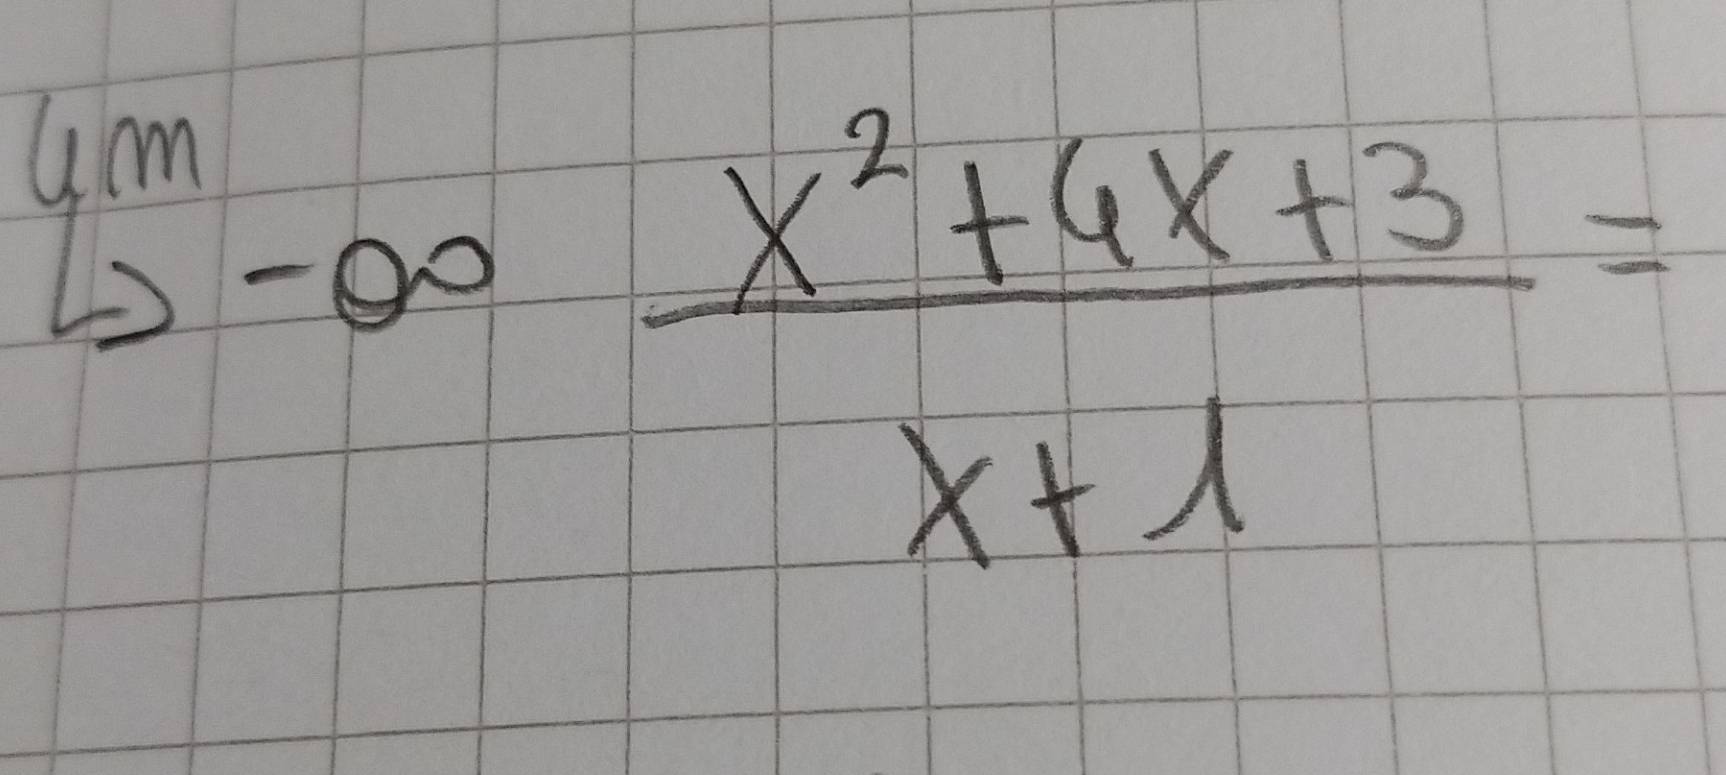 lim x² + 4x + 3 =
→ -∞ x + 1